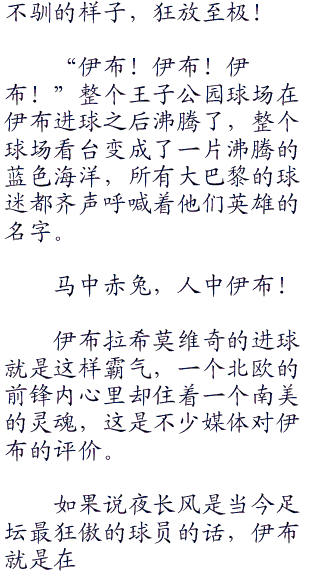 不驯的样子，狂放至极！
“伊布！伊布！伊
布！”整个王子公园球场在
伊布进球之后沸腾了，整个
球场看台变成了一片沸腾的
蓝色海洋，所有大巴黎的球
迷都齐声呼喊着他们英雄的
名字。
马中赤兔，人中伊布！
伊布拉希莫维奇的进球
就是这样霸气，一个北欧的
前锋内心里却住着一个南美
的灵魂，这是不少媒体对伊
布的评价。
如果说夜长风是当今足
坛最狂傲的球员的话，伊布
就是在